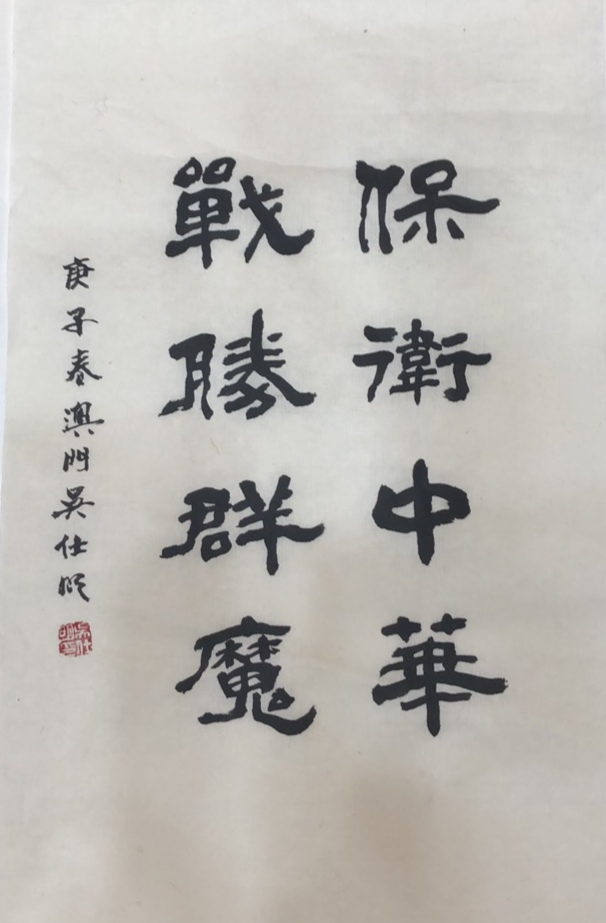 保衛中華
戰勝群魔
庚子春澳門吳仕明